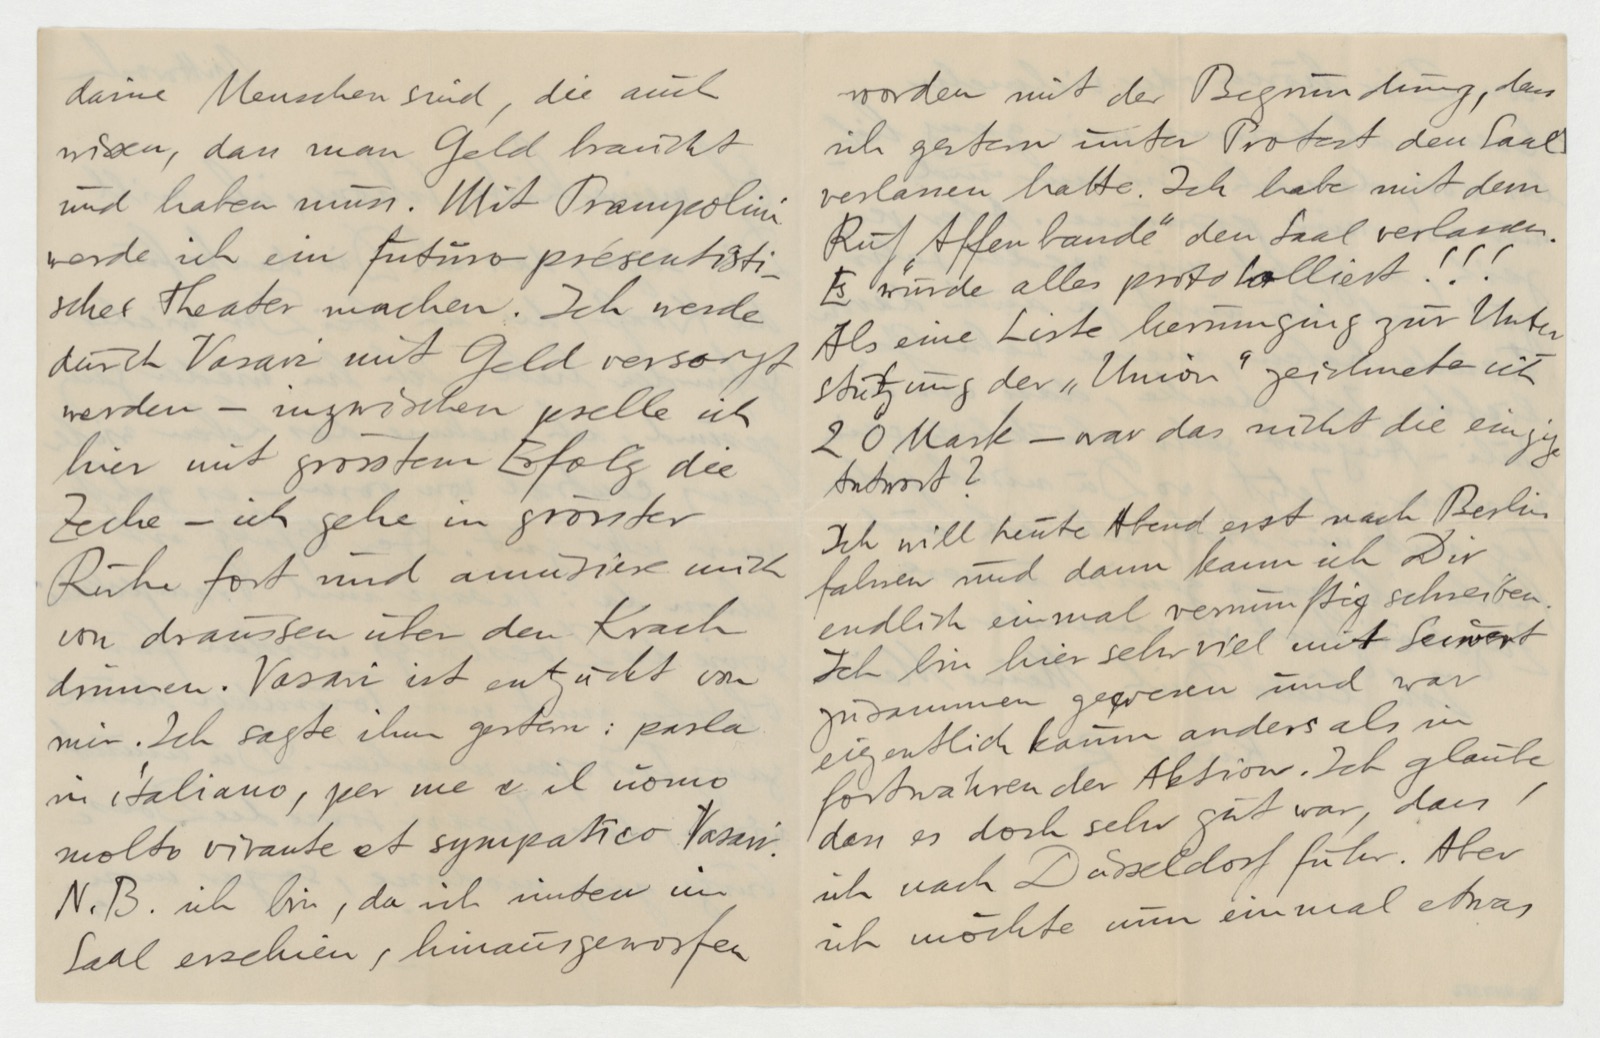 daine Menschen sind, die auch
wissen, dass man Geld braucht
und haben muss. Mit Prampolini
werde ich ein futuro-présentisti-
sches Theater machen. Ich werde
durch Vasari mit Geld versorgt
werden – inzwischen prelle ich
hier mit grösstem Erfolg die
Zeche – ich gehe in grösster
Ruhe fort und amüsiere mich
von draussen über den Krach
drinnen. Vasari ist entzückt von
mir. Ich sagte ihm gestern: parla
in italiano, per me è il uomo
molto vivante et sympatico Vasari.
N.B. ich bin, da ich unten im
Saal erschien, hinausgeworfen
worden mit der Begründung, dass
ich gestern unter Protest den Saal
verlassen hatte. Ich habe mit dem
Ruf „Affenbande“ den Saal verlassen.
Es wurde alles protokolliert!!!
Als eine Liste herumging zur Unter
stützung der „Union“ zeichnete ich
20 Mark – war das nicht die einzige
Antwort?
Ich will heute Abend erst nach Berlin
fahren und dann kann ich Dir
endlich einmal vernünftig schreiben.
Ich bin hier sehr viel mit Seiwert
zusammen gewesen und war
eigentlich kaum anders als in
fortwährender Aktion. Ich glaube
dass es doch sehr gut war, dass
ich nach Düsseldorf fuhr. Aber
ich möchte nun einmal etwas